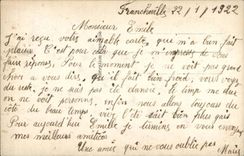 Francheville 22/1/1922
Monsieur Emile
J'ai reçu votre aimable carte, qui m'a bien fait
plaisir. C'est pour cela que je m'empresse de vous
faire réponse. Pour le moment je n'ai pas grand
chose a vous dire, qu'il fait bien froid, vous
du reste, je ne sais pas ete danser, le temps me dure
on ne voit personne, enfin nous allons toujours du
côté du beau temps, vers l'été sait bien plus gai
Pour aujourd'hui Emile je termine en vous envoyant
mes meilleures amitiés
Une amie qui ne vous oublie pas